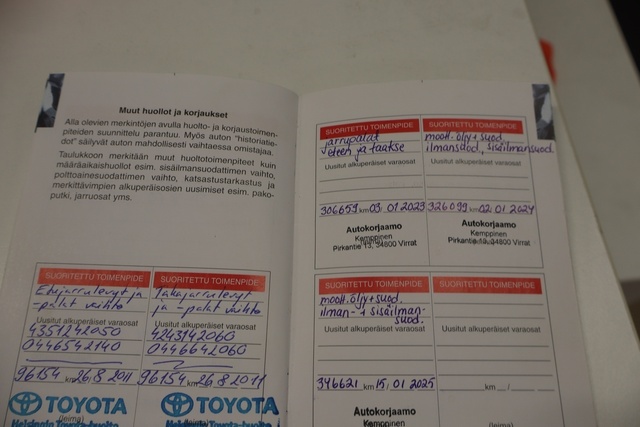 Muut huollot ja korjaukset
Alla olevien merkintöjen avulla huolto- ja korjaustoimen-
piteiden suunnittelu parantuu. Myös auton "historiatie-
dot" säilyvät auton mahdollisesti vaihtaessa omistajaa.
Taulukkoon merkitään muut huoltotoimenpiteet kuin
määräaikaishuollot esim. sisäilmansuodattimen vaihto,
polttoainesuodattimen vaihto, katsastustarkastus ja
merkittävimpien alkuperäisosien uusimiset esim. pako-
putki, jarruosat yms.
SUORITETTU TOIMENPIDE
Etujarrulevyt ja
-palat vaihto
Uusitut alkuperäiset varaosat
4351242050
0446542140
96154 km 26.8 2011
TOYOTA
(leima)
SUORITETTU TOIMENPIDE
Takajarrulevyt
ja -palat vaihto
Uusitut alkuperäiset varaosat
4243142060
0446642060
96154 km 26.8 2011
TOYOTA
(leima)
SUORITETTU TOIMENPIDE
jarrupalat
eteen ja taakse
Uusitut alkuperäiset varaosat
306659 km 03. 01 2023
Autokorjaamo
Kemppinen
Pirkantie 13, 34800 Virrat
SUORITETTU TOIMENPIDE
moott. öljy + suod.
ilmansuod, sisäilmansuod.
Uusitut alkuperäiset varaosat
326099 km 02. 01 2024
Autokorjaamo
Kemppinen
Pirkantie 13, 34800 Virrat
SUORITETTU TOIMENPIDE
moott. öljy + suod.
ilman- + sisäilman-
suod.
Uusitut alkuperäiset varaosat
346621 km 15. 01 2025
Autokorjaamo
Kemppinen
SUORITETTU TOIMENPIDE
Uusitut alkuperäiset varaosat
km
(leima)